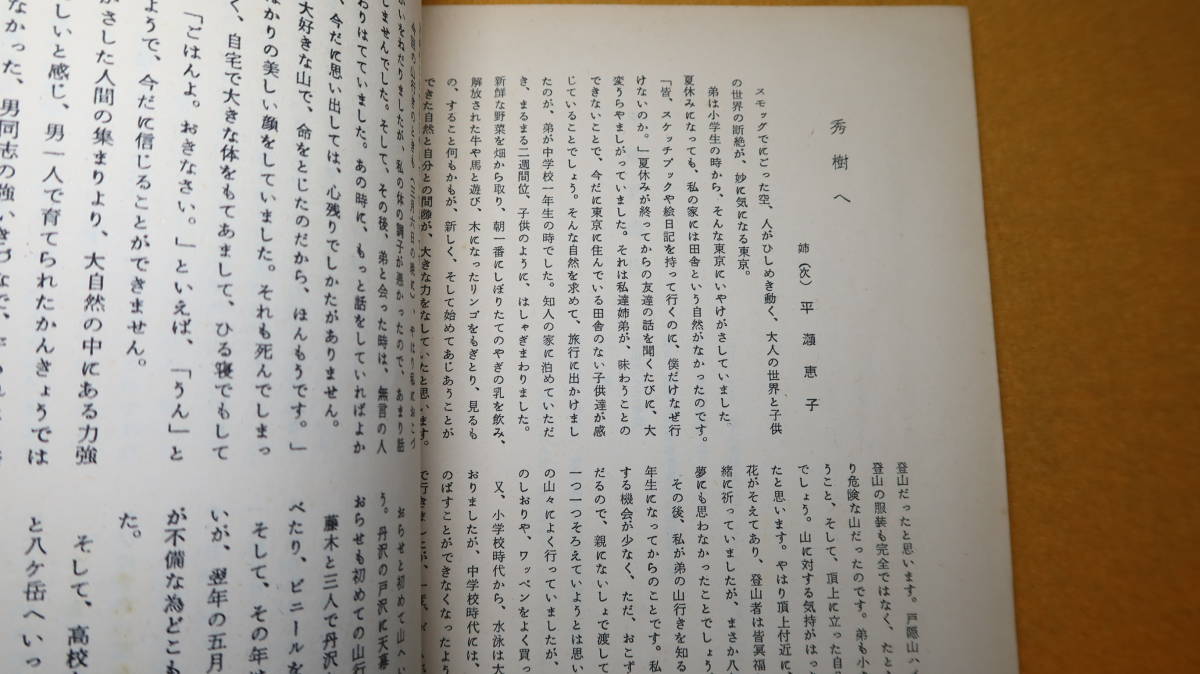 秀樹へ
姉(次)平瀬恵子
スモッグでにごった空、人がひしめき動く、大人の世界と子供
の世界の断絶が、妙に気になる東京。
弟は小学生の時から、そんな東京にいやけがさしていました。
夏休みになっても、私の家には田舎という自然がなかったのです。
「皆、スケッチブックや絵日記を持って行くのに、僕だけなぜ行
けないのか。」夏休みが終ってからの友達の話を聞くたびに、大
変うらやましがっていました。それは私達姉弟が、味わうことの
できないことで、今だに東京に住んでいる田舎のない子供達が感
じていることでしょう。そんな自然を求めて、旅行に出かけまし
たのが、弟が中学校一年生の時でした。知人の家に泊めていただ
き、まるまる二週間位、子供のように、はしゃぎまわりました。
新鮮な野菜を畑から取り、朝一番にしぼりたてのやぎの乳を飲み、
解放された牛や馬と遊び、木になったリンゴをもぎとり、見るも
の、すること何もかもが、新しく、そして始めてあじあうことが
できた自然と自分との間が、大きな力をなしていたと思います。
登山だったと思います。戸隠山ハ
登山の服装も完全ではなく、たと
り危険な山だったのです。弟も小
うこと、そして、頂上に立った自
でしょう。山に対する気持がはっ
たと思います。やはり頂上付近に、
花がそえてあり、登山者は皆冥福
緒に祈っていましたが、まさか八
夢にも思わなかったことでしょう
その後、私が弟の山行きを知る
年生になってからのことです。私
する機会が少なく、ただ、おこず
だるので、親にないしょで渡して
一つ一つそろえていようとは思い
の山々によく行っていましたが、
のしおりや、ワッペンをよく買っ
又、小学校時代から、水泳は大
おりましたが、中学校時代には、
のばすことができなくなったよう
で行きましたが、
かいをねだりましたが、私の体の調子が悪かったので、あまり話
しませんでした。そして、その後、弟と会った時は、無言の人
わりはてていました。あの時に、もっと話をしていればよか
、今だに思い出しては、心残りでしかたがありません。
大好きな山で、命をとじたのだから、ほんもうです。」
ばかりの美しい顔をしていました。それも死んでしまっ
く、自宅で大きな体をもてあまして、ひる寝でもして
「ごはんよ。おきなさい。」といえば、「うん」と
ようで、今だに信じることができません。
がさした人間の集まりより、大自然の中にある力強
しいと感じ、男一人で育てられたかんきょうでは
なかった、男同志の強いきづなで、
おらせと初めて山へい
う。丹沢の戸沢に天幕
おらせも初めての山行
藤木と三人で丹沢
べたり、ビニールを
そして、その年
いが、翌年の五月
が不備な為どこも
た。
そして、高校
と八ケ岳へいっ